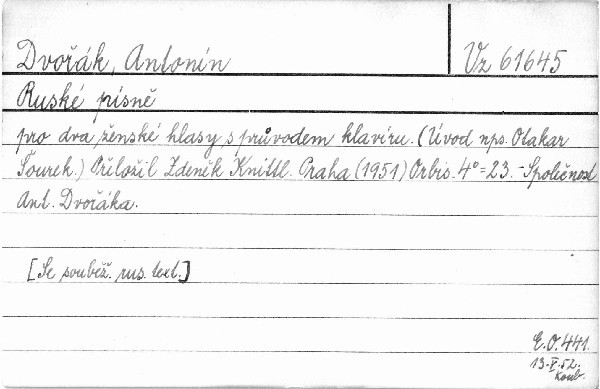 Dvořák, Antonín
Vz 61645
Ruské písně
pro dva ženské hlasy s průvodem klavíru. (Úvod nps. Otakar
Šourek.) Přeložil Zdeněk Knittl. Praha (1951) Orbis. 4°=23.-Společnost
Ant. Dvořáka.
[Se souběž. rus. text.]
E.O.441.
13.X.52.
Koub.